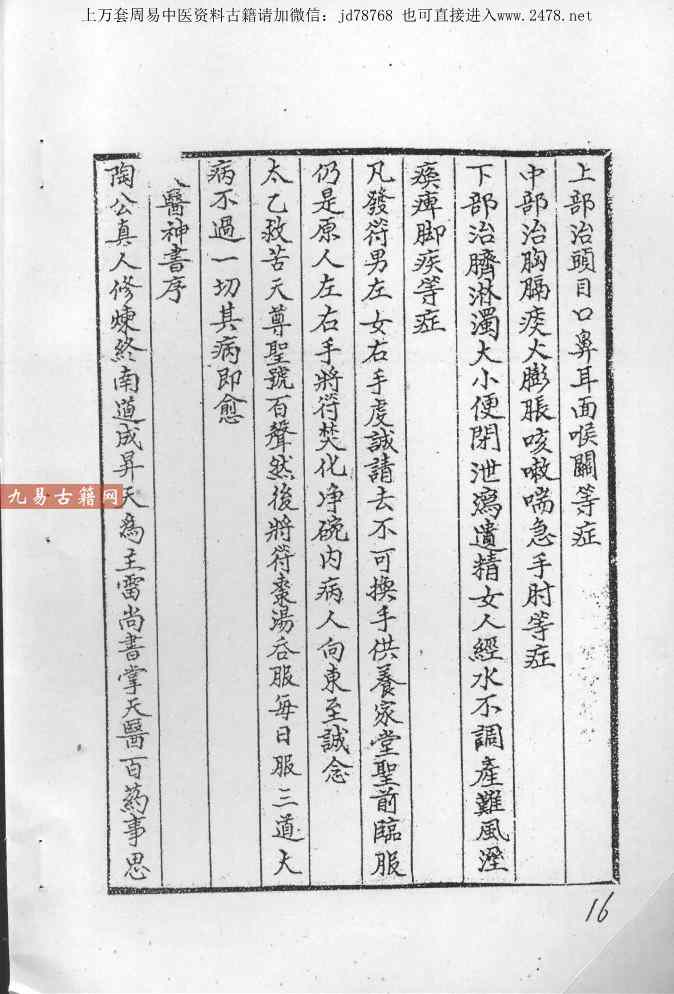 上万套周易中医资料古籍请加微信：jd78768 也可直接进入www.2478.net
上部治頭目口鼻耳面喉關等症
中部治胸膈痰火膨脹咳嗽喘急手肘等症
下部治臍淋濁大小便閉泄瀉遺精女人經水不調產難風溼
痪痺脚疾等症
凡發符男左女右手虔誠請去不可換手供養家堂聖前臨服
仍是原人左右手將符焚化净碗内病人向東至誠念
太乙救苦天尊聖號百聲然後將符棗湯吞服每日服三道大
病不過一切其病即愈
醫神書序
陶公真人修煉終南道成昇天為主雷尚書掌天醫百药事思
九易古籍网
16